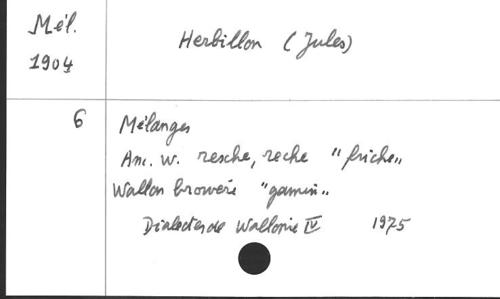 Mél.
1904
Herbillon (Jules)
6
Mélanges
Anc. w. resche, reche "friche„
Wallon browèrè "gamin„
Dialectes de Wallonie IV 1975